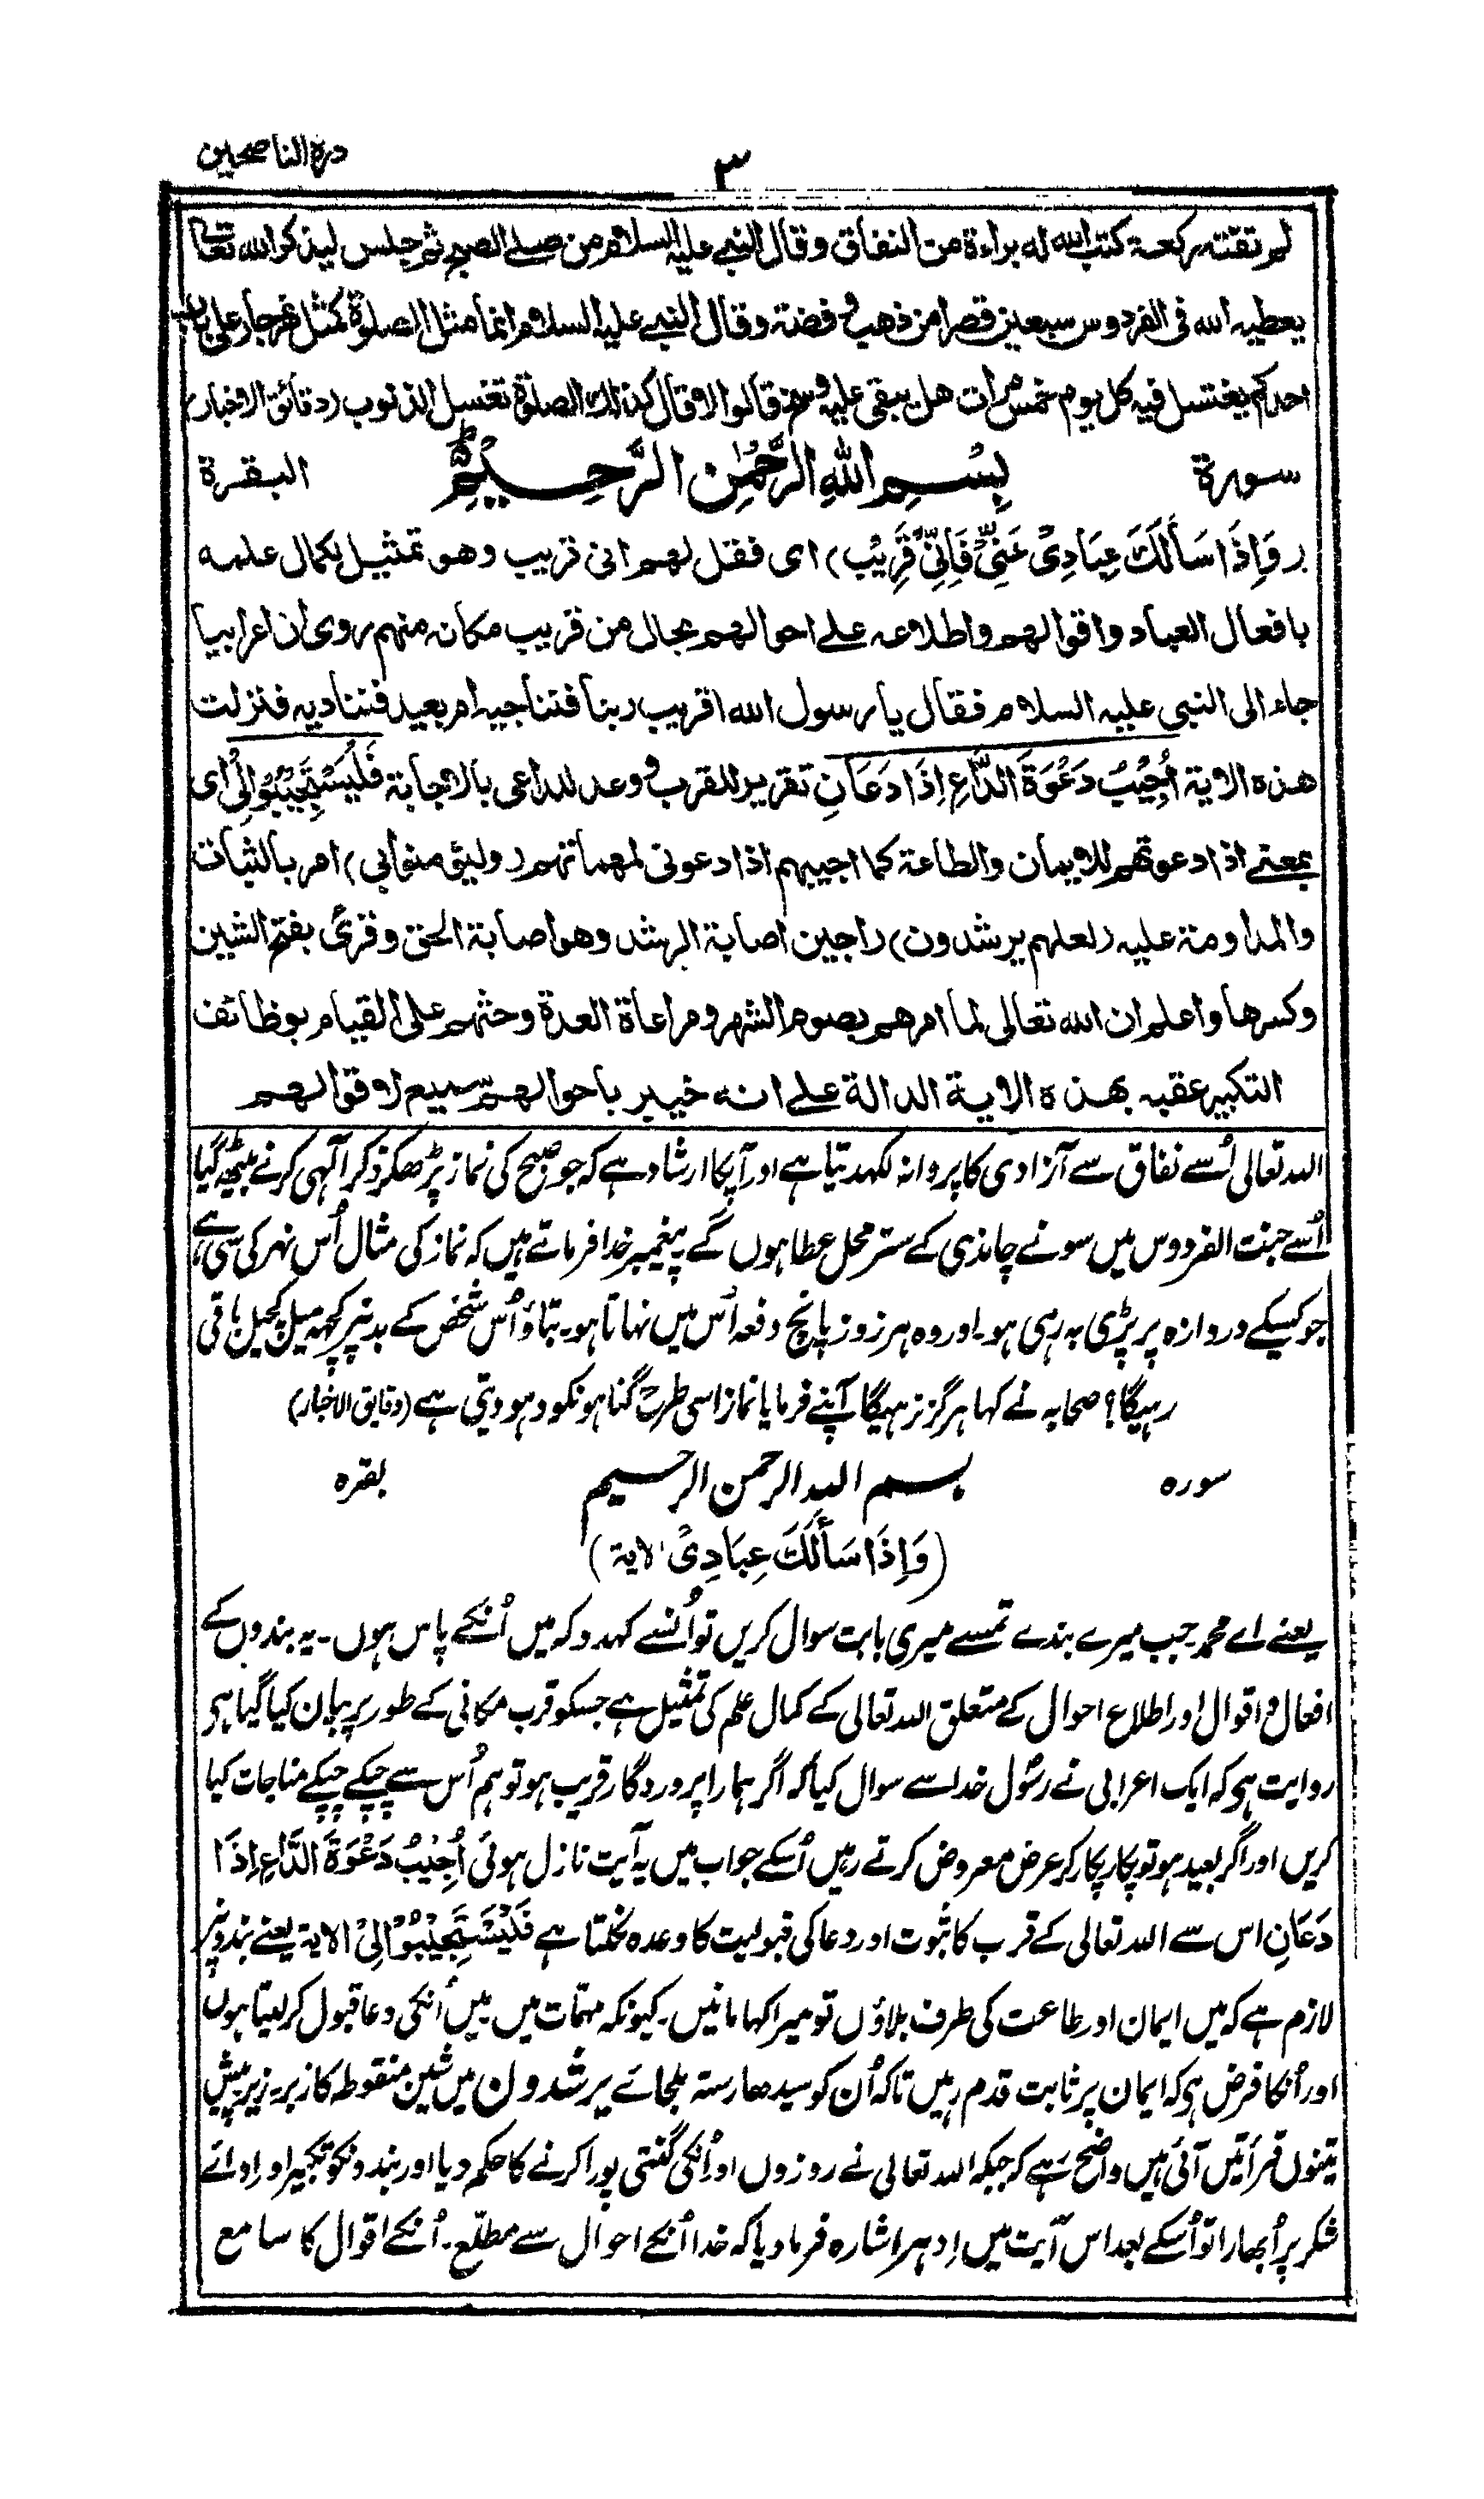 درة الناصحين
٣
لم تفته ركعة كتب الله له براءة من النفاق وقال النبى عليه السلام من صلى الصبح ثم جلس ليذكر الله تعالى
يعطيه الله فى الفردوس سبعين قصرا من ذهب و فضة وقال النبى عليه السلام انما مثل الصلوة كمثل نهر جار على باب
احدكم يغتسل فيه كل يوم خمس مرات هل يبقى عليه وسخ قالوا لا قال كذلك الصلوة تغسل الذنوب (دقائق الاخبار)
سورة بِسْمِ اللهِ الرَّحْمٰنِ الرَّحِيْمِ البقرة
(وَاِذَا سَاَلَكَ عِبَادِىْ عَنِّىْ فَاِنِّىْ قَرِيْب) اى فقل لهم انى قريب وهو تمثيل بكمال علمه
بافعال العباد واقوالهم واطلاعه على احوالهم بحال من قريب مكانه منهم روى ان اعرابيا
جاء الى النبى عليه السلام فقال يا رسول الله اقريب ربنا فنناجيه ام بعيد فنناديه فنزلت
هذه الاية اُجِيْبُ دَعْوَةَ الدَّاعِ اِذَا دَعَانِ تقرير للقرب و وعد للداعى بالاجابة فَلْيَسْتَجِيْبُوْا لِىْ اى
بمعنى اذا دعوتهم للايمان والطاعة كما اجيبهم اذا دعونى لمهماتهم (وليؤمنوا بى) امر بالثبات
والمداومة عليه (لعلهم يرشدون) راجين اصابة الرشد وهو اصابة الحق وقرئ بفتح الشين
وكسرها واعلم ان الله تعالى لما امرهم بصوم الشهر ومراعاة العدة وحثهم على القيام بوظائف
التكبير عقبه بهذه الاية الدالة على انه خبير باحوالهم سميع لاقوالهم
اللہ تعالی اُسے نفاق سے آزادی کا پروانہ لکھدیتا ہے اور آپکا ارشاد ہے کہ جو صبح کی نماز پڑھکر ذکر الٰہی کرنے بیٹھ گیا
اُسے جنت الفردوس میں سونے چاندی کے ستر محل عطا ہوں گے پیغمبر خدا فرماتے ہیں کہ نماز کی مثال اُس نہر کی سی ہے
جو کسیکے دروازہ پر پڑی بہ رہی ہو۔ اور وہ ہر روز پانچ دفعہ اُس میں نہاتا ہو۔ بتاؤ اُس شخص کے بدنپر کچہہ میل کچیل باقی
رہیگا؟ صحابہ نے کہا ہرگز نرہیگا آپنے فرمایا نماز اسی طرح گناہونکو دہو دیتی ہے (دقایق الاخبار)
سورہ بسم اللہ الرحمن الرحیم بقرہ
(وَاِذَا سَاَلَكَ عِبَادِىْ الایة)
یعنے اے محمد جب میرے بندے تمسے میری بابت سوال کریں تو اُنسے کہدو کہ میں اُنکے پاس ہوں۔ یہ بندوں کے
افعال و اقوال اور اطلاع احوال کے متعلق اللہ تعالی کے کمال علم کی تمثیل ہے جسکو قرب مکانی کے طور پر بیان کیا گیا ہی
روایت ہی کہ ایک اعرابی نے رسُول خدا سے سوال کیا کہ اگر ہمارا پروردگار قریب ہو تو ہم اُس سے چپکے چپکے مناجات کیا
کریں اور اگر بعید ہو تو پکار پکار کر عرض معروض کرتے رہیں اُسکے جواب میں یہ آیت نازل ہوئی اُجِيْبُ دَعْوَةَ الدَّاعِ اِذَا
دَعَانِ اس سے اللہ تعالی کے قرب کا ثبوت اور دعا کی قبولیت کا وعدہ نکلتا ہے فَلْيَسْتَجِيْبُوْا لِىْ الایة یعنے بندونپر
لازم ہے کہ میں ایمان اور طاعت کی طرف بلاؤں تو میرا کہا مانیں۔ کیونکہ مہمّات میں۔ میں اُنکی دعا قبول کر لیتا ہوں
اور اُنکا فرض ہی کہ ایمان پر ثابت قدم رہیں تاکہ اُن کو سیدھا رستہ ملجائے یرشدون میں شین منقوطہ کا زبر۔ زیر پیش
تینوں قرأتیں آئی ہیں واضح رہے کہ جبکہ اللہ تعالی نے روزوں اور اُنکی گنتی پورا کرنے کا حکم دیا اور بندونکو تکبیر اور ادائے
شکر پر اُبھارا تو اُسکے بعد اس آیت میں اِدہر اشارہ فرما دیا کہ خدا اُنکے احوال سے مطلع۔ اُنکے اقوال کا سامع